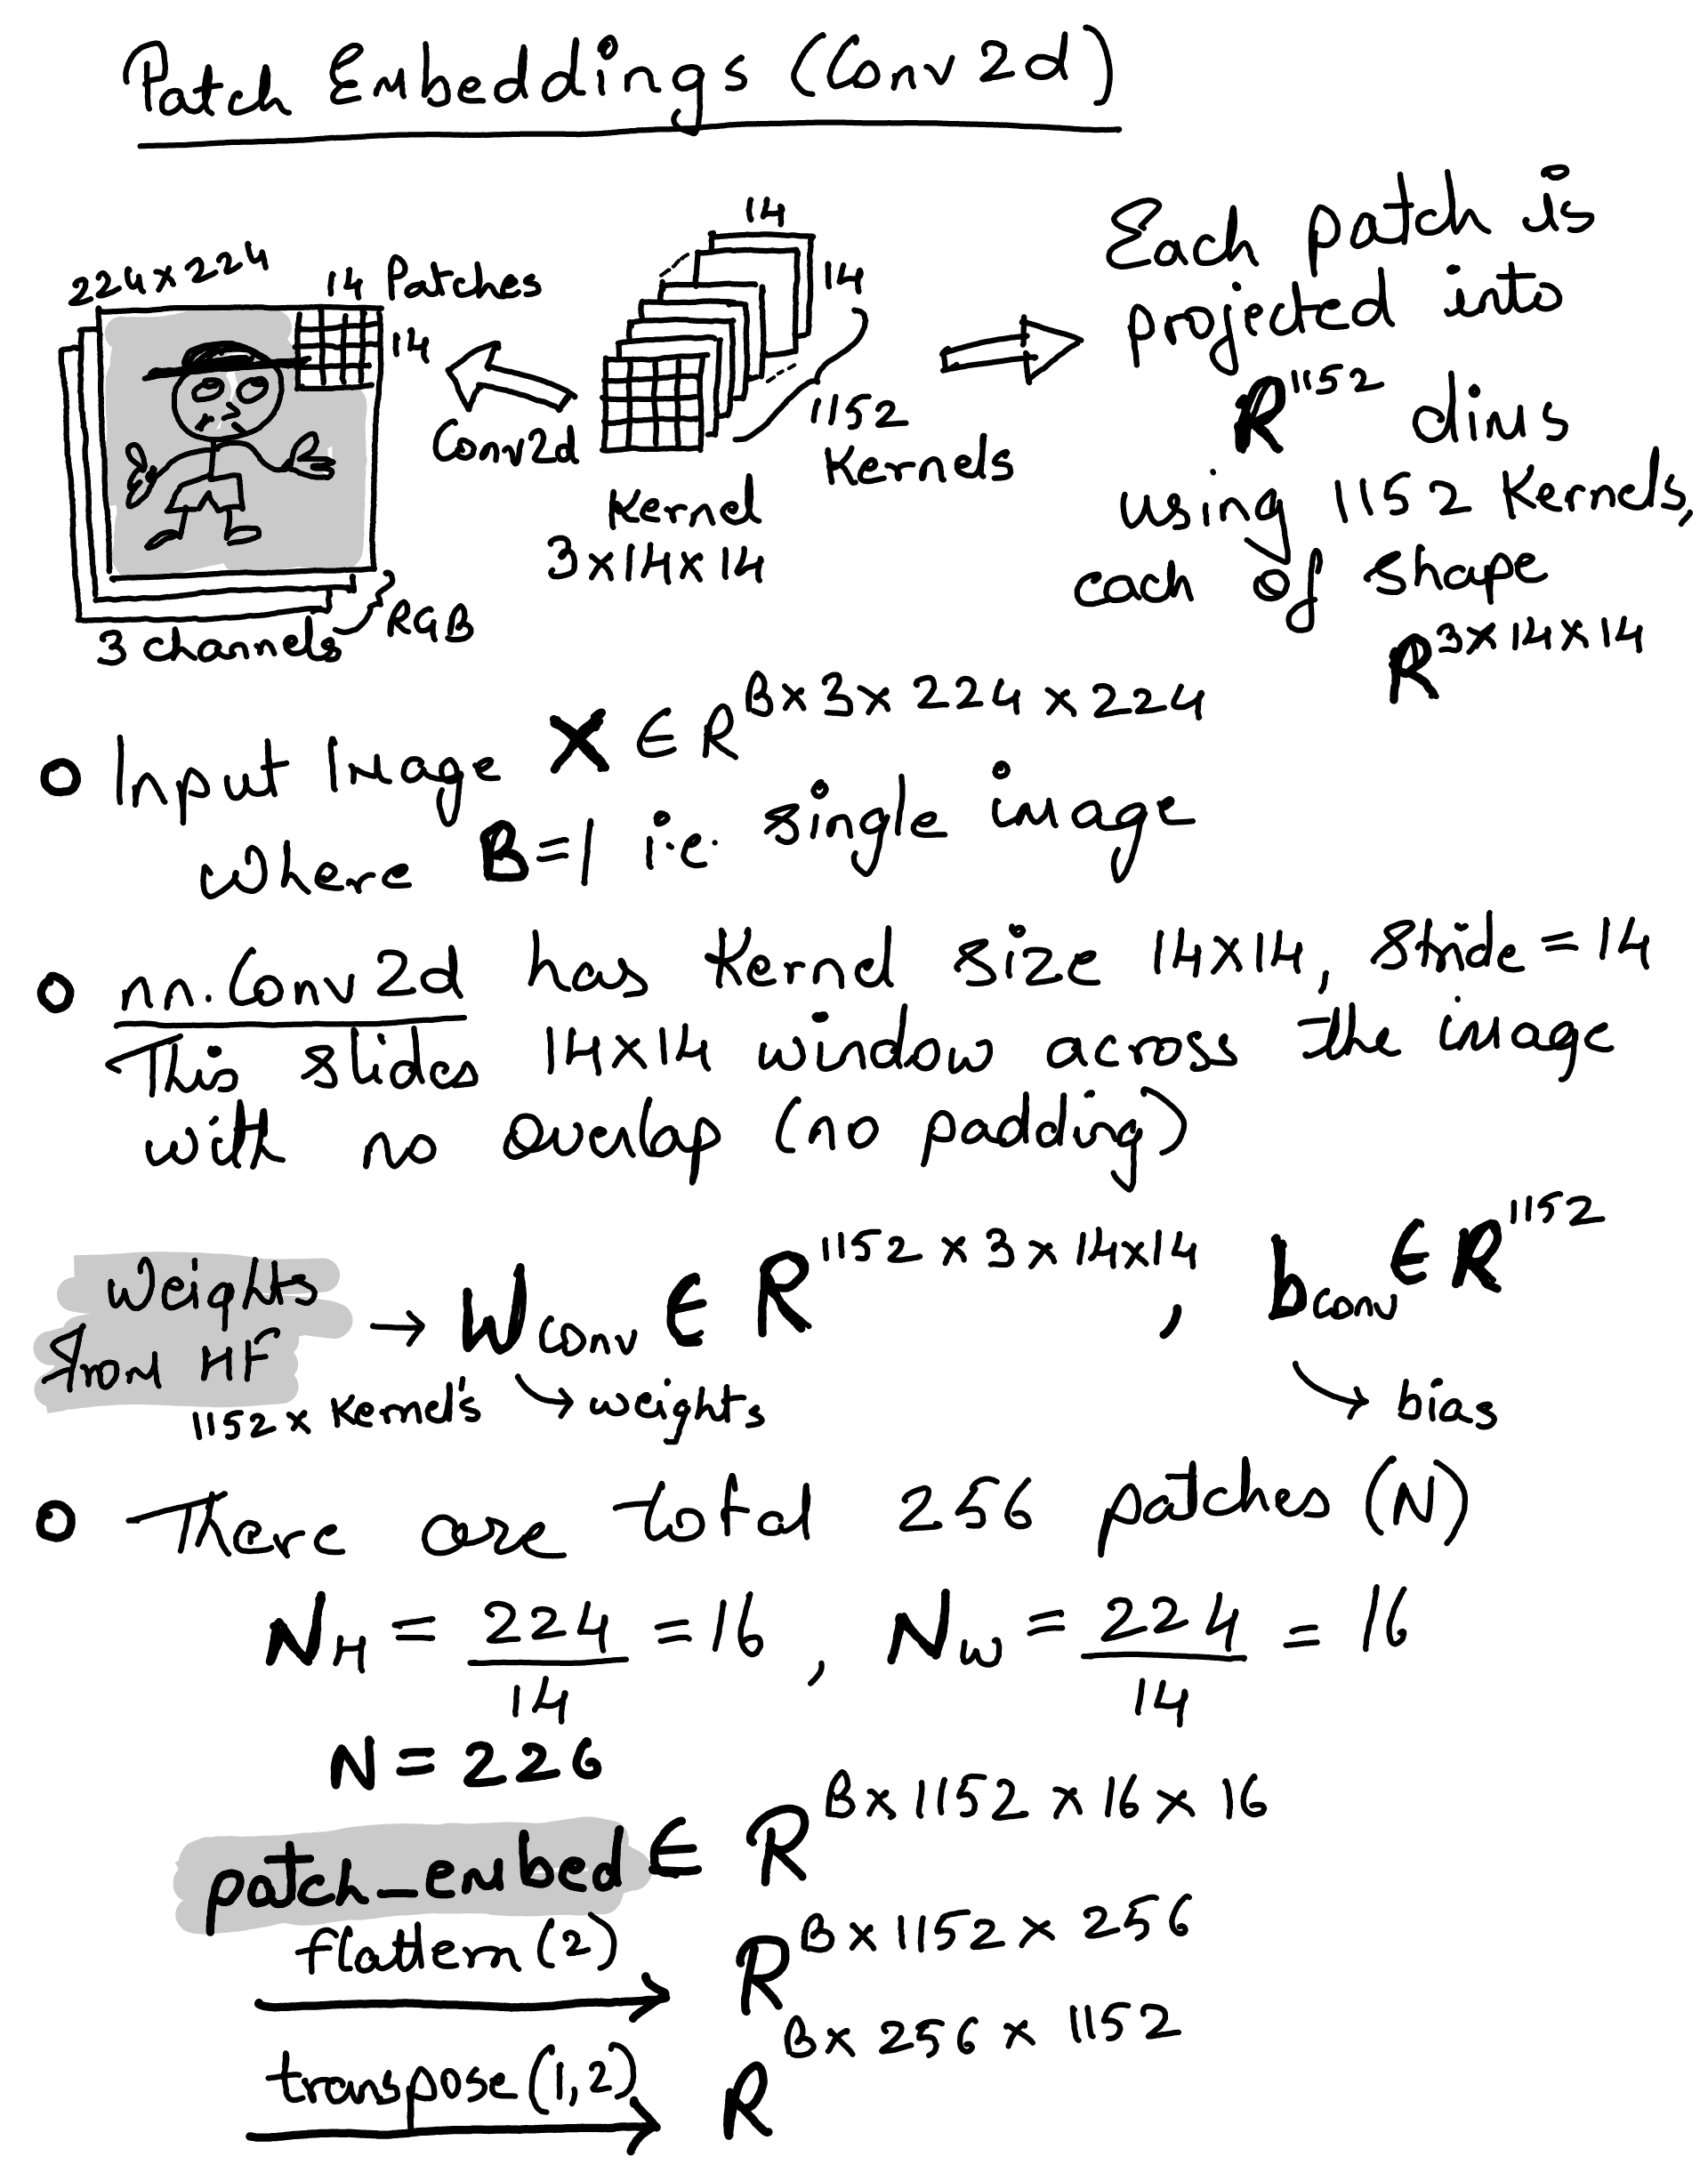 Patch Embeddings (Conv2d)
224x224
14 Patches
14
3 channels
RGB
Conv2d
14
14
1152
Kernels
Kernel
3x14x14
Each patch is
projected into
R^1152 dims
using 1152 Kernels,
each of shape
R^3x14x14
o Input Image X ∈ R^Bx3x224x224
where B=1 i.e. single image
o nn.Conv2d has Kernel size 14x14, Stride = 14
This slides 14x14 window across the image
with no overlap (no padding)
Weights
from HF
→ W conv ∈ R^1152x3x14x14, b conv ∈ R^1152
1152 x Kernel's → weights → bias
o There are total 256 patches (N)
N_H = 224/14 = 16, N_W = 224/14 = 16
N = 226
patch_embed ∈ R^Bx1152x16x16
flattern(2) → R^Bx1152x256
transpose(1,2) → R^Bx256x1152